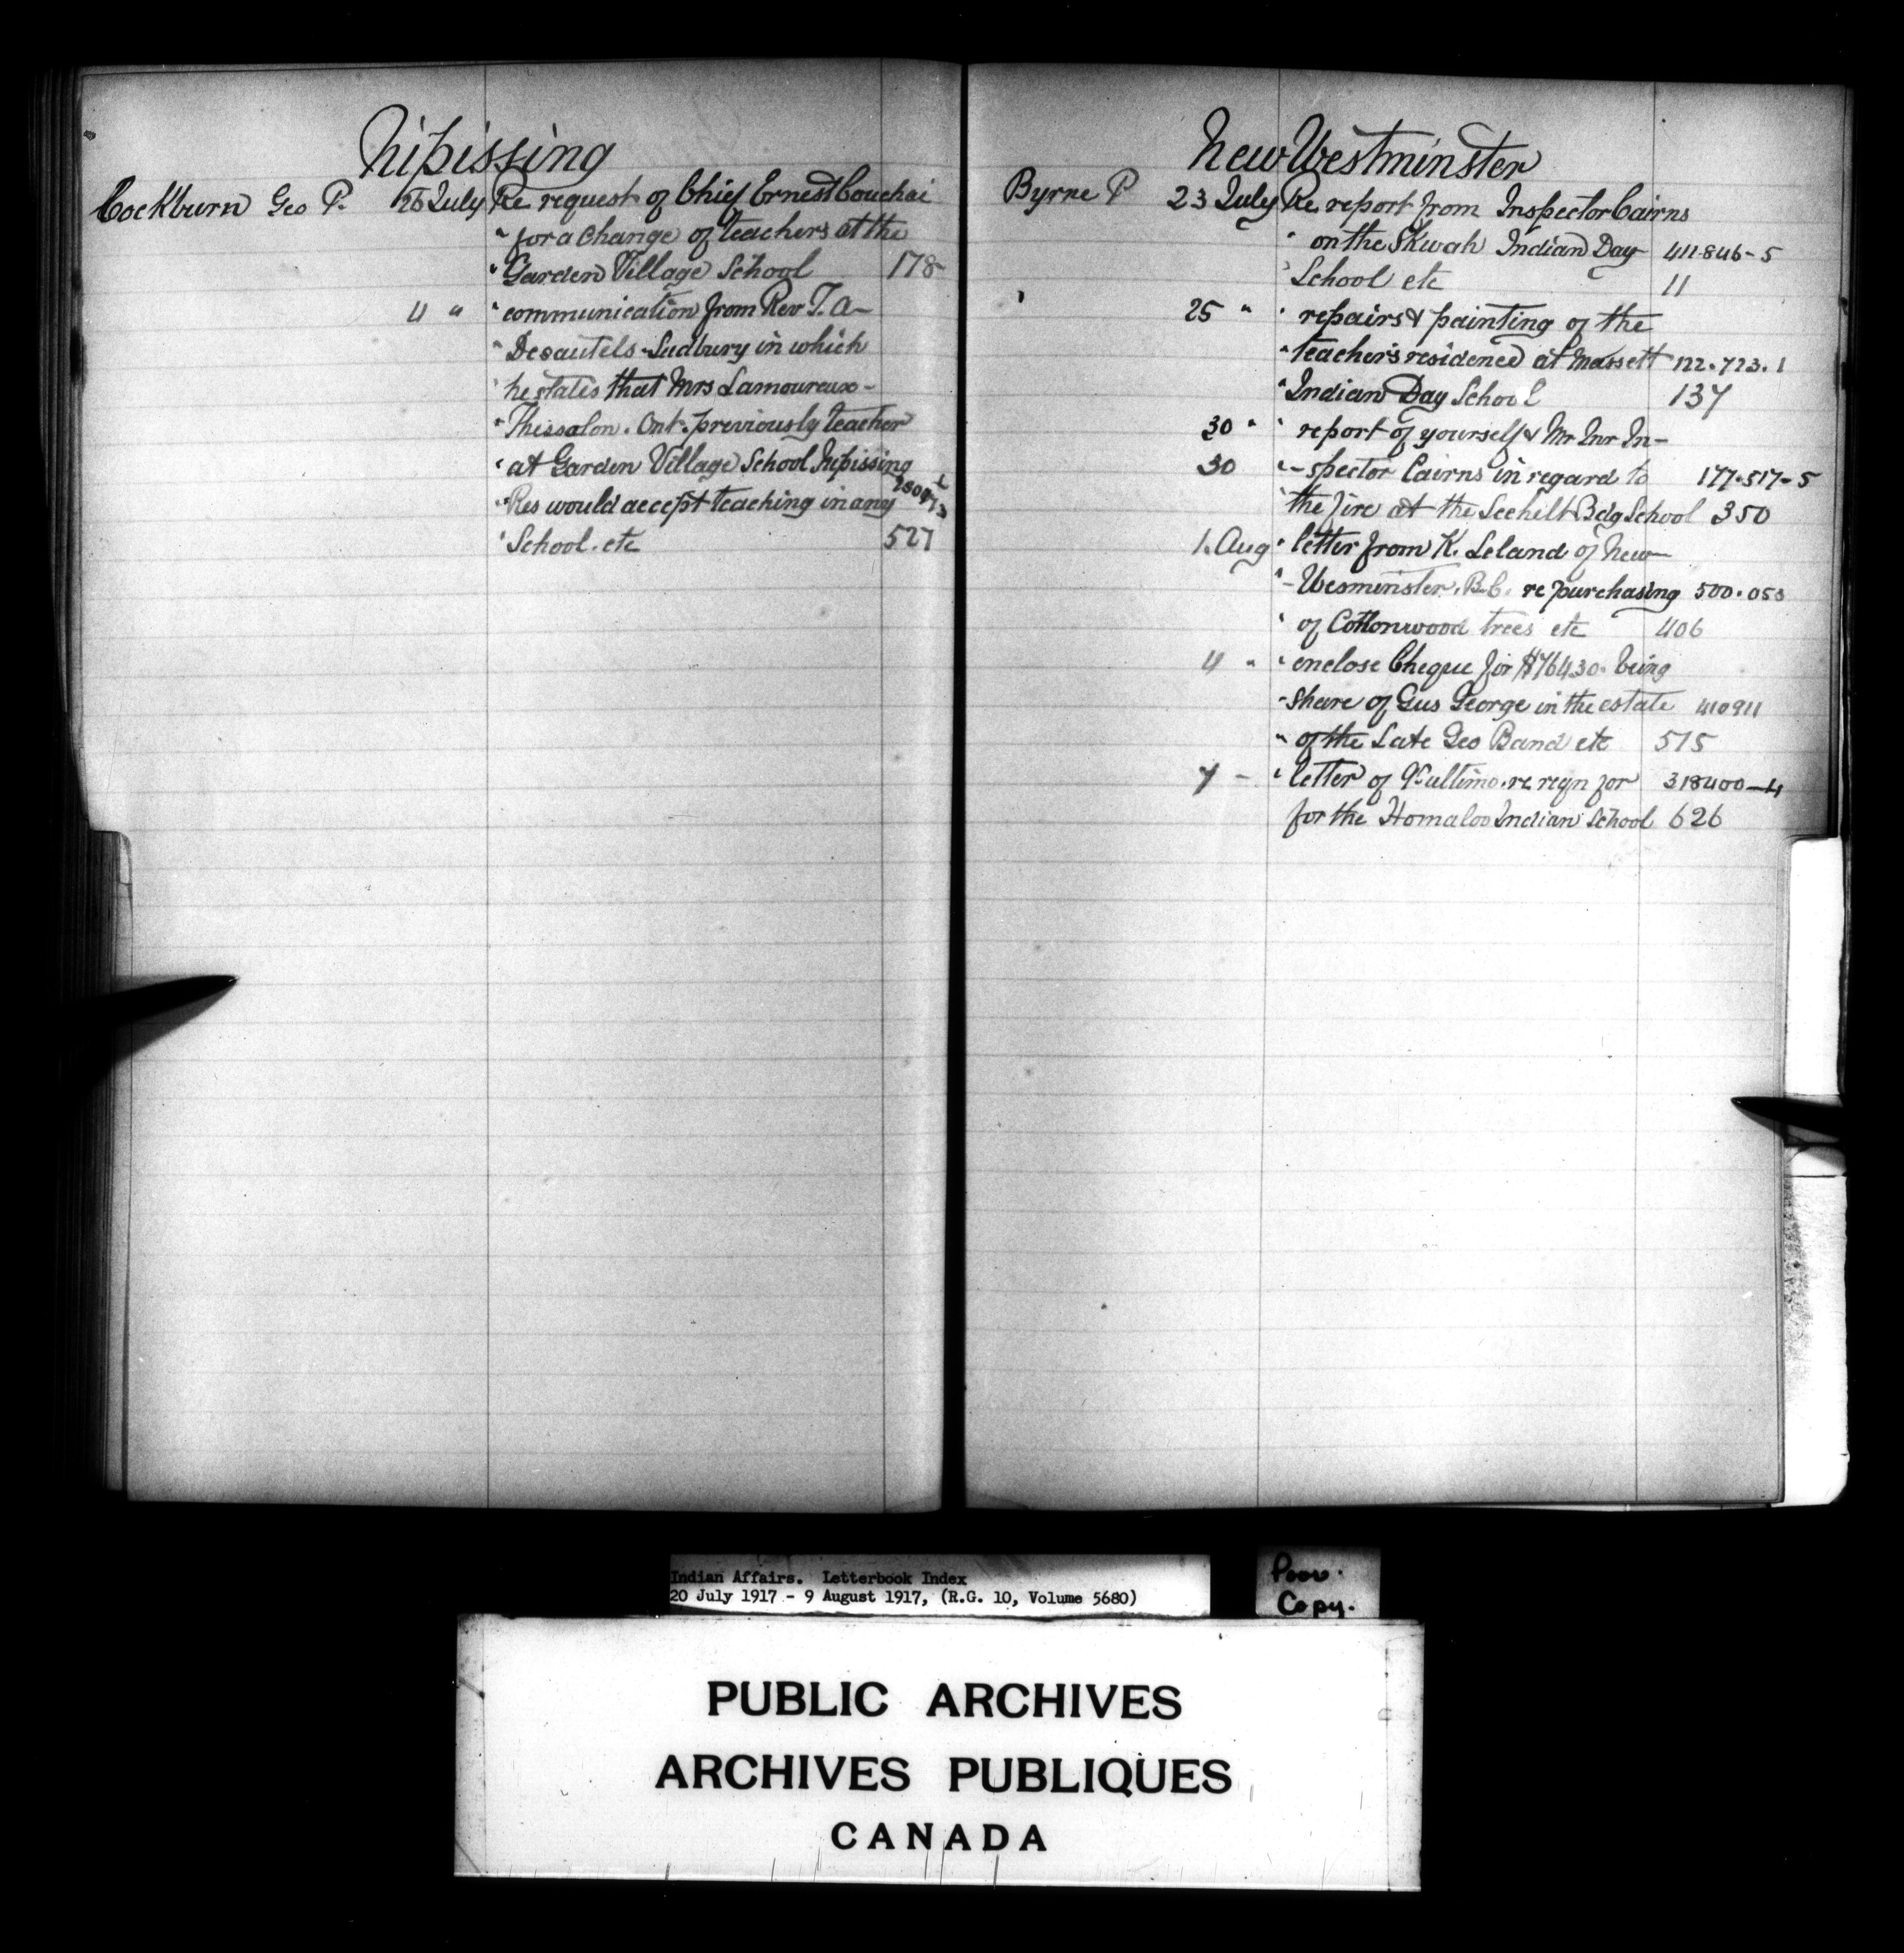 Nipissing
Cockburn Geo P. 26 July Re request of Chief Ernest Couchai
" for a Change of teachers at the
" Garden Village School 178
4 " " communication from Rev T. A-
" Desautels. Sudbury in which
" he states that Mrs Lamoureux-
" Thissalon. Ont. previously teacher
" at Garden Village School Nipissing
" Res would accept teaching in any
" School. etc 527
New Westminster
Byrne P 23 July Re report from Inspector Cairns
" on the Skwah Indian Day 411.846-5
" School etc 11
25 " " repairs & painting of the
" teachers residence at Massett 122.723.1
" Indian Day School 137
30 " " report of yourself & Mr Inr In-
30 "-spector Cairns in regard to 177.517-5
" the fire at the Seehilt Bdg School 350
1. Aug " letter from K. Leland of New-
"-Wesminster. B.C. re purchasing 500.053
" of Cottonwood trees etc 406
4 " " enclose Cheque for $764.30. being
" share of Gus George in the estate 410911
" of the Late Geo Band etc 515
7 - " letter of ultimo. re reqn for 318400-4
for the Homalco Indian School 626
Indian Affairs. Letterbook Index
20 July 1917 - 9 August 1917, (R.G. 10, Volume 5680)
Poor.
Copy.
PUBLIC ARCHIVES
ARCHIVES PUBLIQUES
CANADA